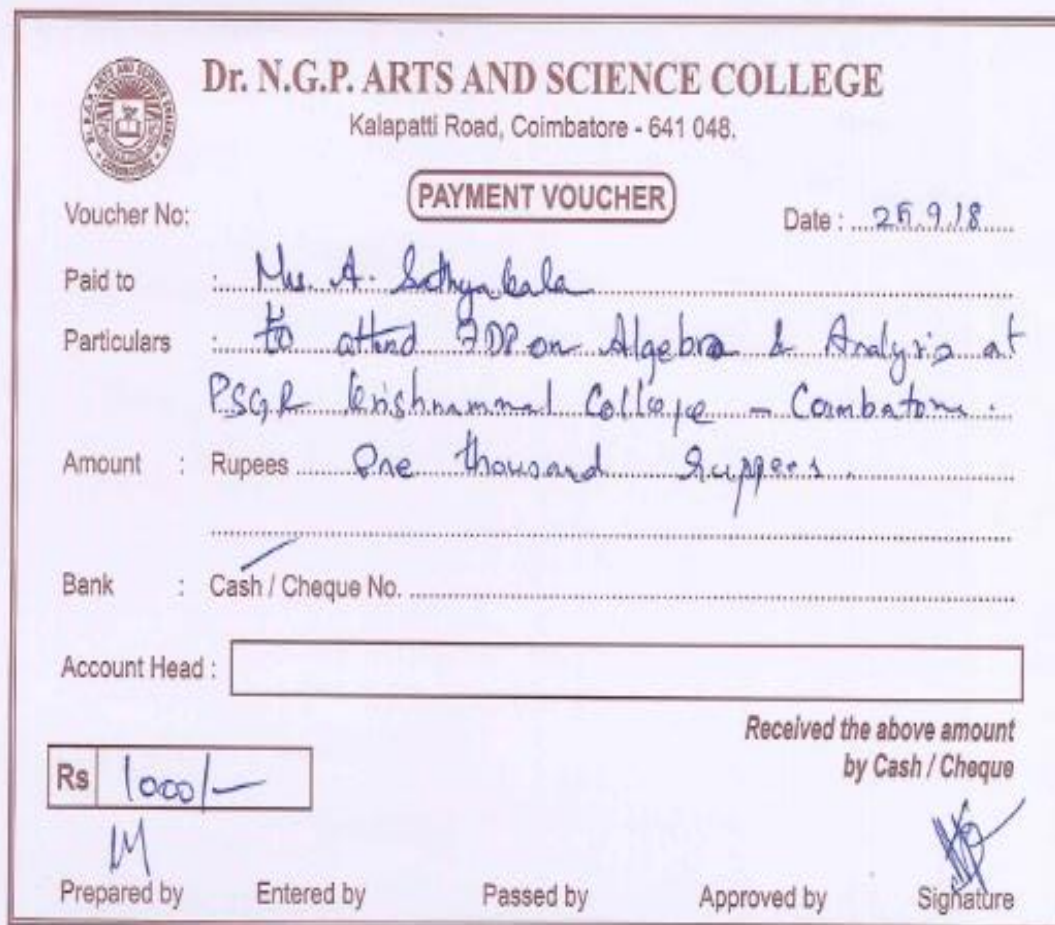 Dr. N.G.P. ARTS AND SCIENCE COLLEGE
Kalapatti Road, Coimbatore - 641 048.
PAYMENT VOUCHER
Voucher No:
Date : 25.9.18
Paid to : Ms. A. Sathyakala
Particulars : to attend FDP on Algebra & Analysis at
PSGR Krishnammal College - Coimbatore.
Amount : Rupees One thousand Ruppees.
Bank : Cash / Cheque No.
Account Head :
Received the above amount
by Cash / Cheque
Rs 1000/-
Prepared by Entered by Passed by Approved by Signature